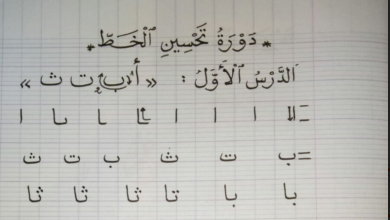 * دَوْرَةُ تَحْسِينِ ٱلْخَطِّ *
اَلدَّرْسُ ٱلْأَوَّلُ : « أ، ب، ت، ث »
ا ا ا ا ـا ـا ا
= ب ت ث ب ت ث
با با تا ثا ثا ثا